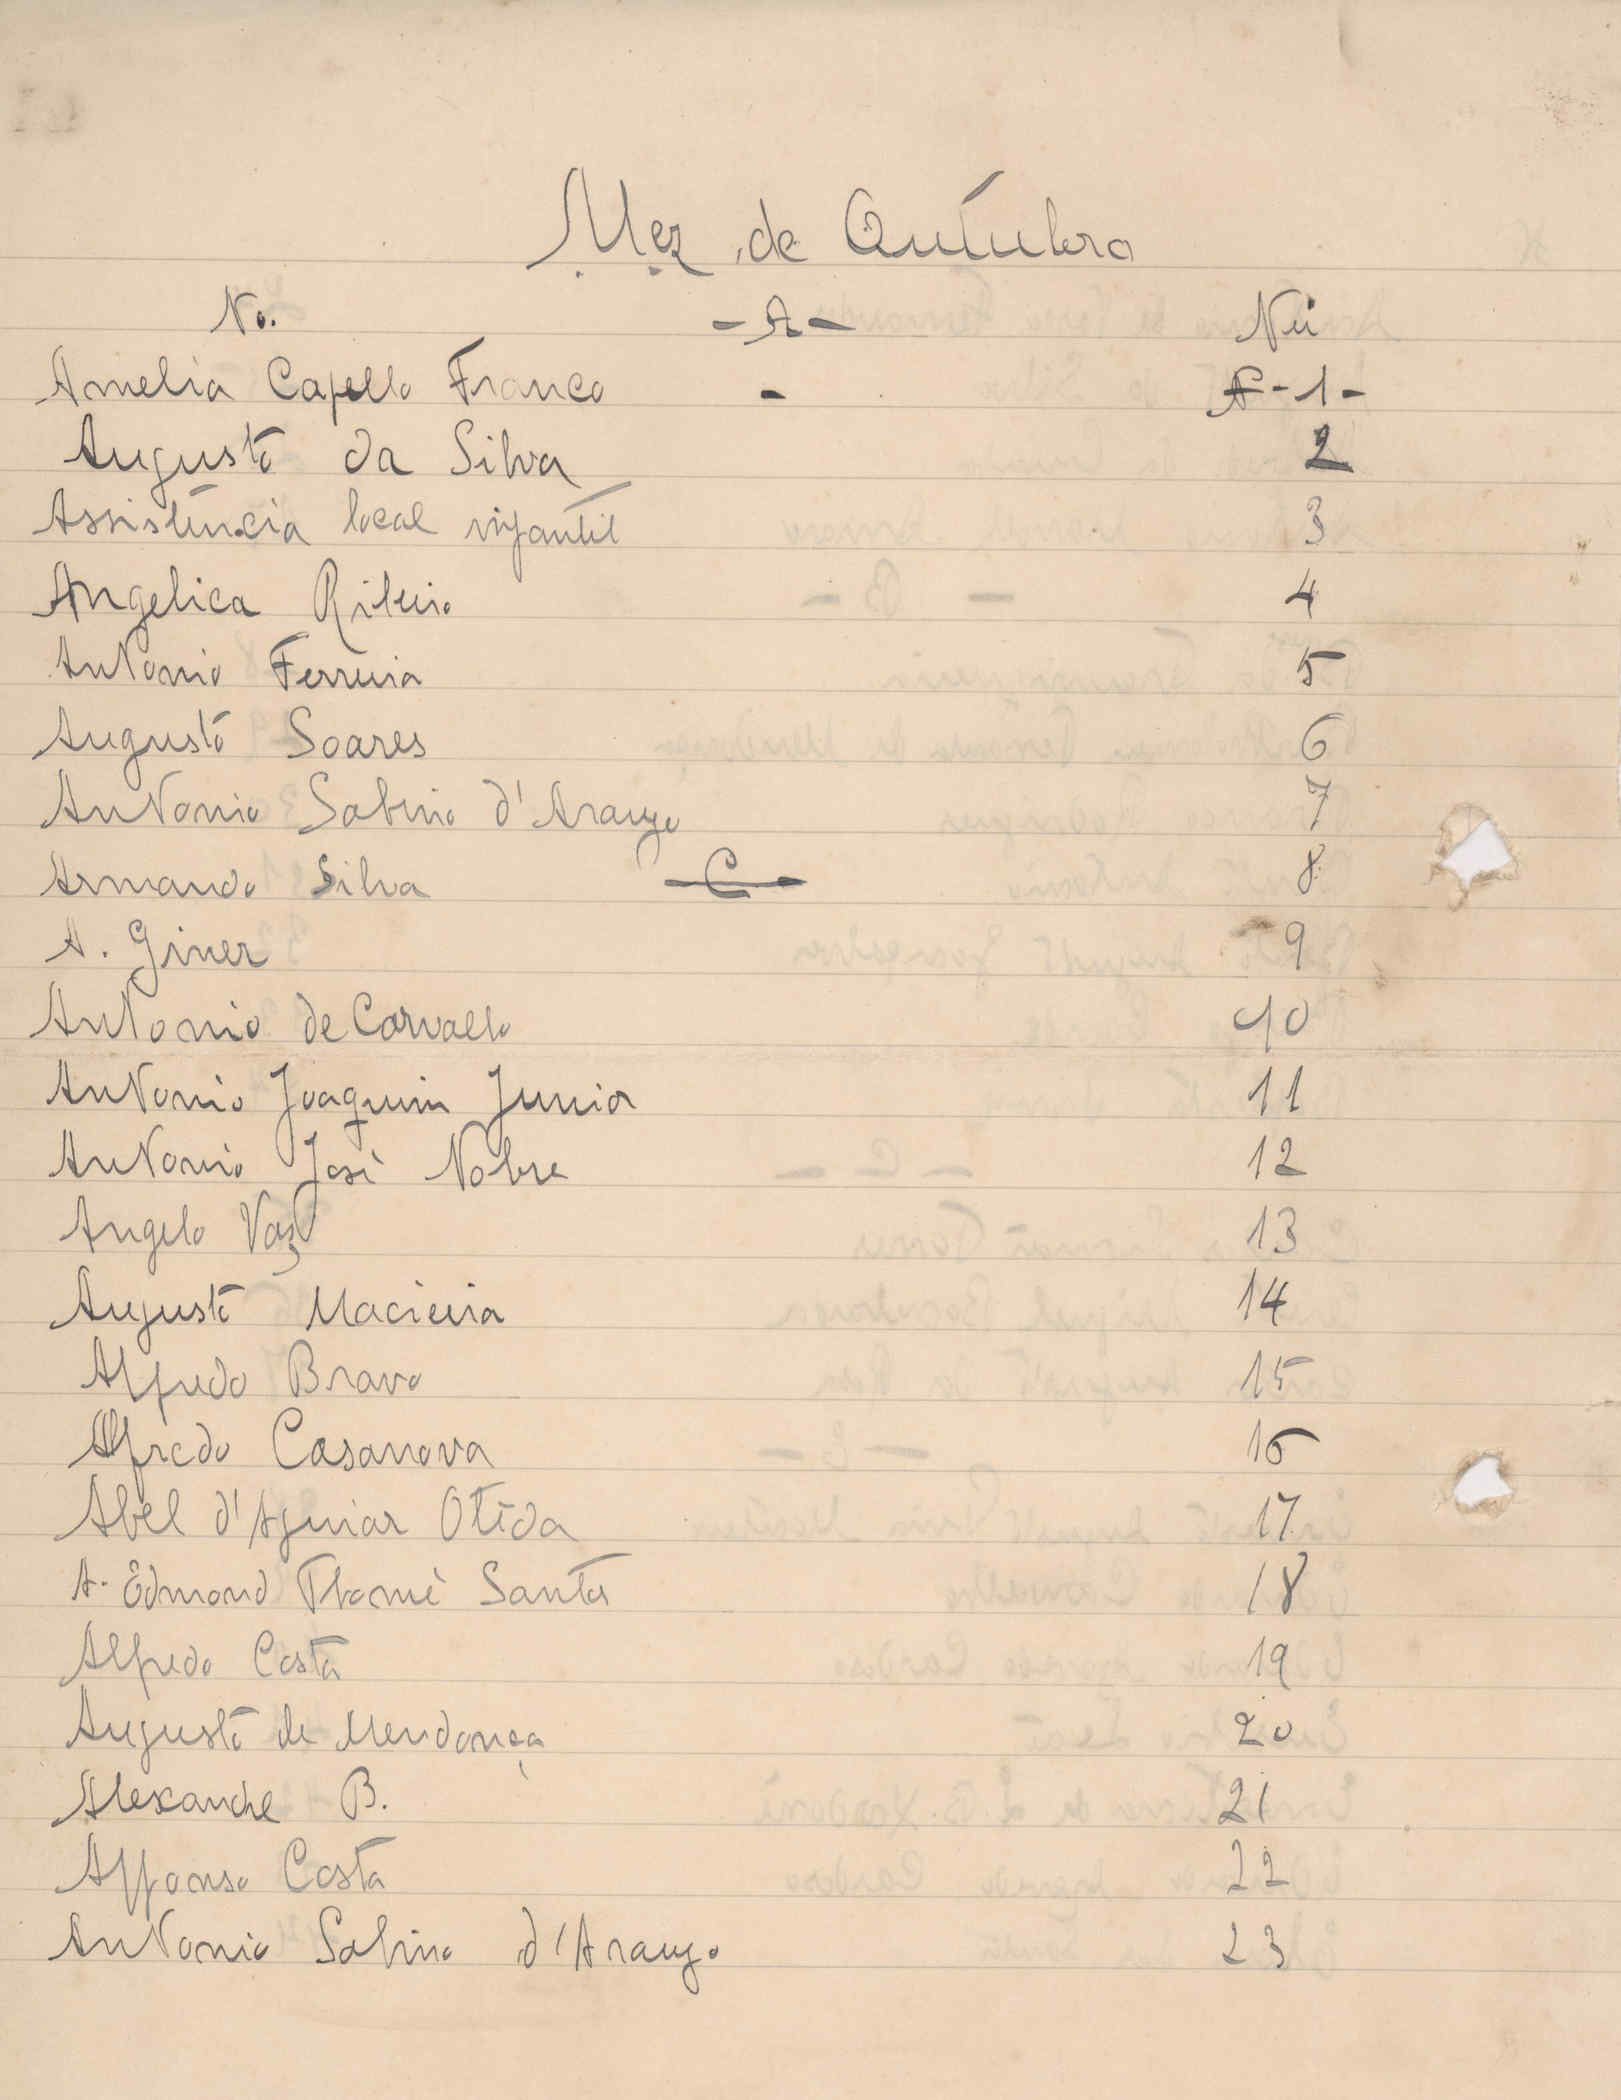 Mez de Outubro
No. - A - Nu
Amelia Capello Franco - A - 1 -
Augusto da Silva 2
Assistencia local infantil 3
Angelica Ribeiro 4
Antonio Ferreira 5
Augusto Soares 6
Antonio Sabino d'Araujo 7
Armando Silva - C - 8
A. Giner 9
Antonio de Carvallo 10
Antonio Joaquim Junior 11
Antonio José Nobre 12
Angelo Vaz 13
Augusto Macieira 14
Alfredo Bravo 15
Alfredo Casanova 16
Abel d'Aguiar 17
A. Edmond Thomé Santos 18
Alfredo Costa 19
Augusto de Mendonça 20
Alexandre B. 21
Affonso Costa 22
Antonio Sabino d'Araujo 23